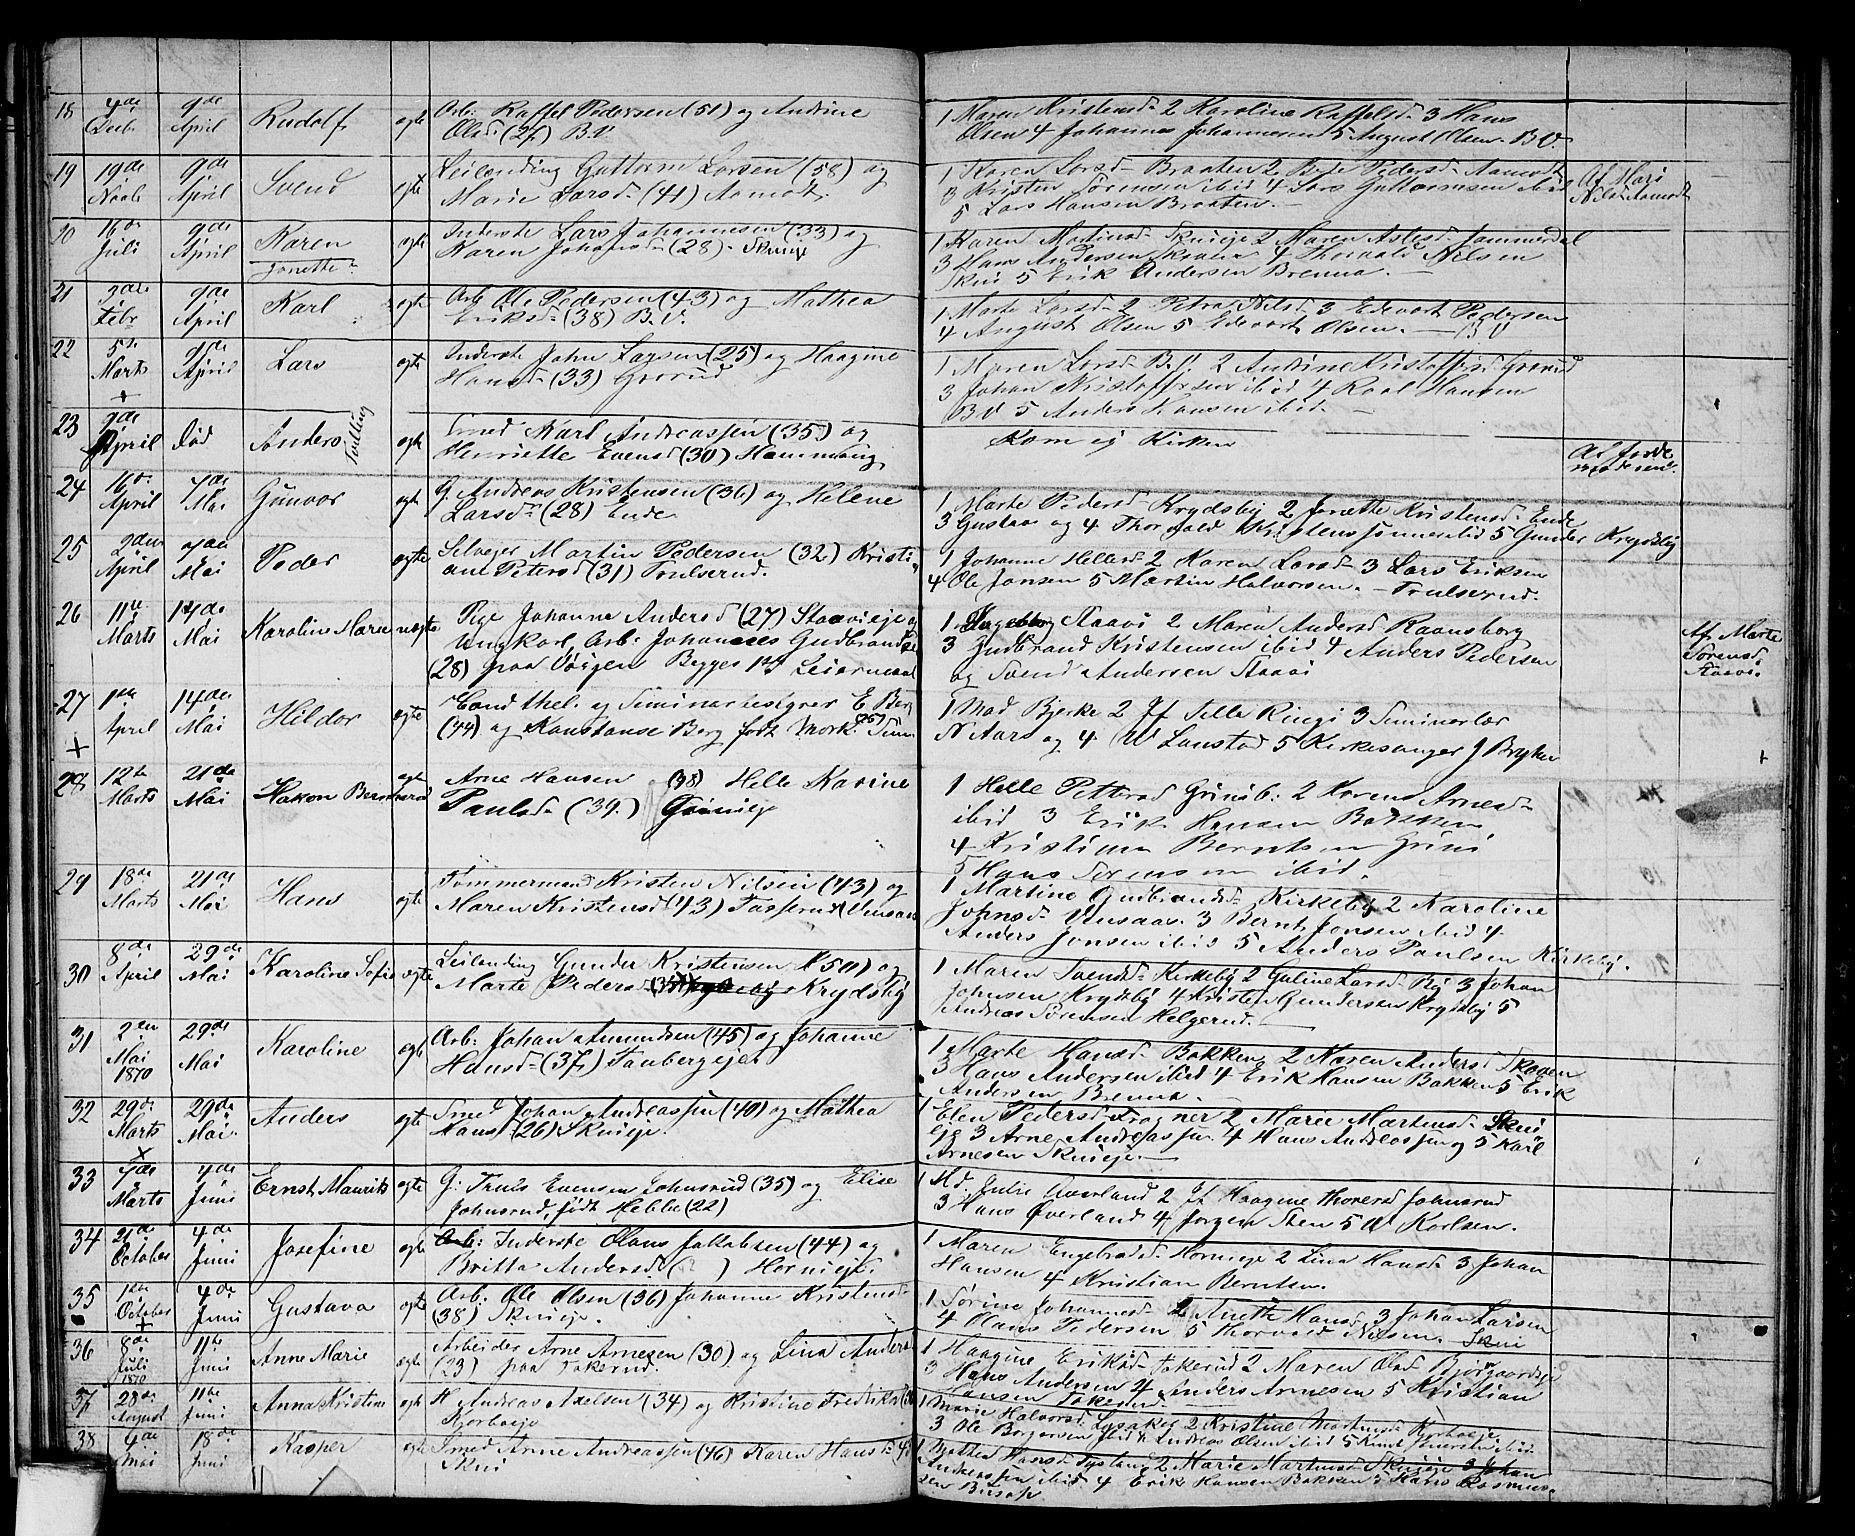 18 4de Decb 9de April Rudolf ægte Arb: Raffel Pedersen (51) og Andrine
Olsd (27) B.V.
1 Maren Kristensd 2 Karoline Raffelsd 3 Hans
Olsen 4 Johannes Johannesen 5 August Olsen. B.V.
19 19de Novb 9de April Svend ægte Leilending Guttorm Larsen (58) og
Marie Larsd (41) Aamodt
1 Karen Larsd Braaten 2 Pedersd Aamodt
3 Kristen Sørensen ibid 4 Lars Guttormsen ibid
5 Lars Hansen Braaten.
Af Mari
Aamodt
20 16de Juli 9de April Karen
Jonette
ægte Inderste Lars Johannesen (33) og
Karen Johansd (28) Skuieje
1 Karen Martinsd Skuieje 2 Maren Jammerdal
3 Hans Andersen 4 Thorvald Nilsen
Skui 5 Erik Andersen Brenna.
21 Febr 9de April Karl ægte Arb Ole Pedersen (43) og Mathea
Eriksd (38) B.V.
1 Marte Larsd 2 Petra Nilsd 3 Edevart Pedersen
4 August Olsen 5 Edevart Olsen. B.V
22 5te Marts 9de April Lars ægte Inderste John Larsen (25) og Haagine
Hansd (33) Grorud
1 Maren Larsd B.V. 2 Andrine Kristoffersd Grorud
3 Johan Kristoffersen ibid 4 Hansen
B.V 5 Anders Hansen ibid.
23 9de April død Anders Tvilling ægte Smed Karl Andreassen (35) og
Henriette Evensd (30) Hammang
Kom ej Kirken
Af Jorde
moderen
24 16de April 7de Mai Gunvor ægte G. Andreas Kristensen (36) og Helene
Larsd (28) Ende
1 Marte Pedersd Krydsby 2 Jonette Kristensd Ende
3 Gustav og 4 Thorvald Kristenssønner ibid 5 Gunder Krydsby
25 2den April 7de Mai Peder ægte Selveger Martin Pedersen (32) Kristi-
ane Petersd (31) Trulserud.
1 Johanne Hellesd 2 Karen Larsd 3 Lars Eriksen
4 Ole Jonsen 5 Martin Halvorsen. Trulserud.
26 11te Marts 14de Mai Karoline Marie uægte Pige Johanne Andersd (27) Staavieje og
Ungkarl, Arb. Johannes Gudbrandsen
(28) paa Vøien Begges 1ste Leiermaal
1 Ingeborg Staavi 2 Maren Andersd Ramsborg
3 Gudbrand Kristensen ibid 4 Anders Pedersen
og Svend Andersen Staavi
Af Marte
Sørensd.
Staavi.
27 1ste April 14de Mai Hildor ægte Cand thel. og Seminarbestyrer E Berg
(44) og Konstanse Berg født Mork (25)
1 Mad Bjerke 2 Jf Jelle Ringi 3 Seminarlær
N Aars og 4 W Lanstad 5 Kirkesanger J Bryhn
28 12te Marts 21de Mai Hakon Berntinius ægte Arne Hansen (38) Helle Karine
Paulsd (39.) Grinieje
1 Helle Pettersd 2 Karen Arnesd
ibid 3 Erik Hansen Bakken
4 Kristian Berntsen Grini
5 Hans Sørensen ibid.
29 18de Marts 21de Mai Hans ægte Tømmermand Kristen Nilsen (43) og
Maren Kristensd (43)
1 Martine Gudbrandsd Kirkeby 2 Karoline
Johnsd 3 Bernt Jonsen ibid 4
Anders Jonsen ibid 5 Anders Paulsen Kirkeby.
30 8de April 29de Mai Karoline Sofie ægte Leilending Gunder Kristensen (50) og
Marte Pedersd (35) Krydsby
1 Maren Svendsd Kirkeby 2 Guline Larsd By 3 Johan
Johnsen Krydsby 4 Kristen Gundersen Krydsby 5
Andreas Sørensen Helgerud.
31 2den Mai 1870 29de Mai Karoline ægte Arb: Johan Amundsen (45) og Johanne
Hansd (37) Tanbergejet
1 Marte Hansd Bakken 2 Karen Andersd Skoven
3 Hans Andersen ibid 4 Erik Hansen Bakken 5 Erik
Andersen Brenna.
32 29de Marts 29de Mai. Anders ægte Smed Johan Andreassen (40) og Mathea
Hansd (26) Skuieje.
1 Elen Pedersd 2 Marie Martinsd Skui
eje 3 Arne Andreassen. 4 Hans Andreassen og 5 Karl
Arnesen Skuieje
33 7de Marts 4de Juni Ernst Maurits ægte G: Truls Evensen Johnsrud (35) og Elise
Johnsrud, født Hebbe (22)
1 Md Julie Øverland 2 Jf Haagine Thoresd Johnsrud
3 Hans Øverland 4 Jørgen Sten 5 O Karlsen.
34 21de October 4de Juni Josefine ægte Arb: Inderste Olaus Jakobsen (44) og
Britta Andersd ( ) Hornieje.
1 Maren Engebretsd Hornieje 2 Lina Hansd 3 Johan
Hansen 4 Kristian Berntsen.
35 1ste October 4de Juni Gustava ægte Arb. Ole Olsen (36) Johanne Kristensd
(38) Skuieje.
1 Sørine Johannesd 2 Aneth Hansd 3 Johan Larsen
4 Olaus Pedersen 5 Thorvald Nilsen. Skui
36 8de Juli 1870 11te Juni Anne Marie ægte Arbeider Arne Arnesen (30) og Lina Andersd
(23) paa Jakerud.
1 Haagine Eriksd Jakerud 2 Maren Olsd Bjørgaardseje
3 Hans Andersen 4 Anders Arnesen 5 Kristian
Hansen Jakerud.
37 28de August 11te Juni Anna Kristine ægte H Andreas Axelsen (34) og Kristine Fredriksd
Kjørboeje
1 Marie Halvorsd Lysaker 2 Kristine Martinsd Kjørboeje
3 Ole Borgersen ibid 4 Andreas Olsen ibid 5 Knut ibid.
38 4de Mai 18de Juni Kasper ægte Smed Arne Andreassen (46) Karen Hansd (4
Skui
1 Mathea Hansd 2 Marie Martinsd Skuieje 3 Johan
Andreassen ibid. 4 Erik Hansen Bakken 5 Hans Rasmus-
sen